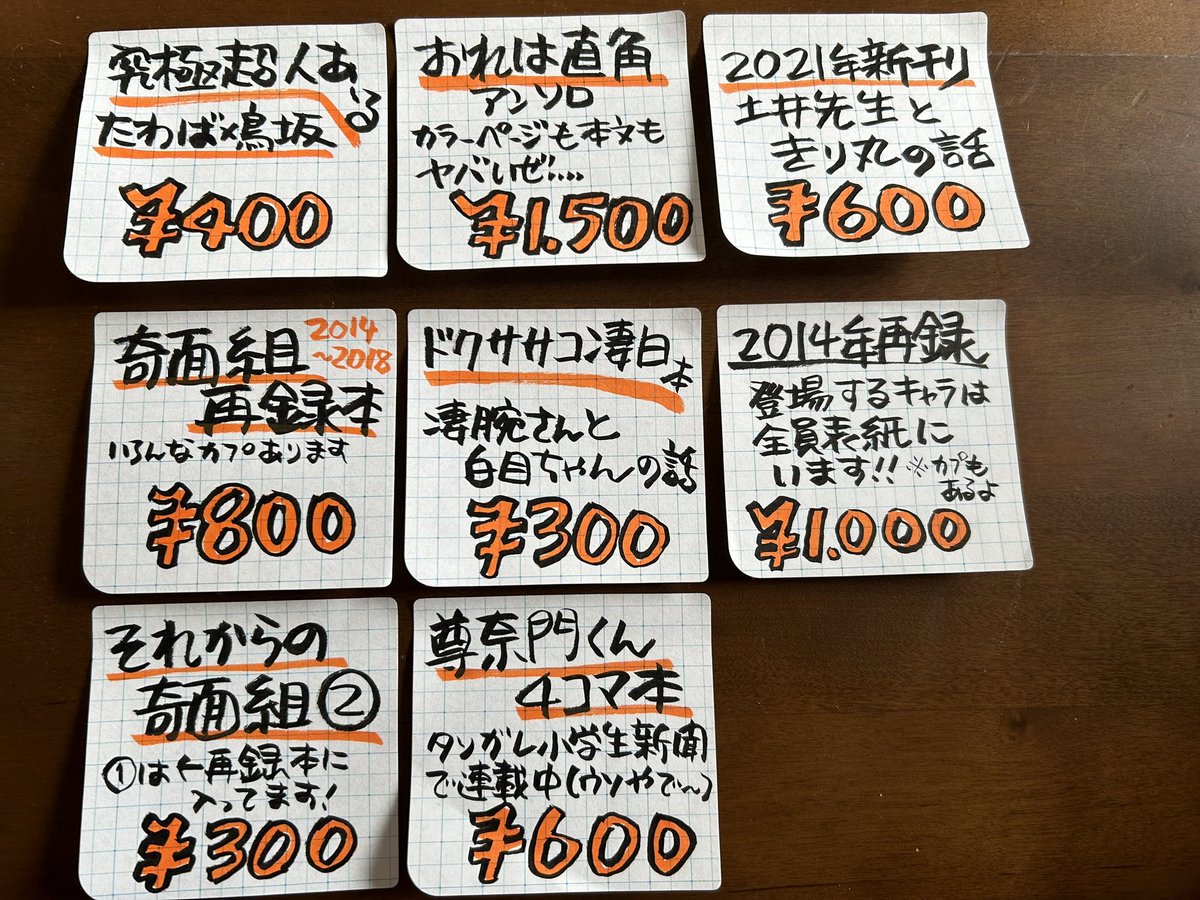 究極超人あ〜る
たわば×鳥坂
¥400
おれは直角
アンソロ
カラーページも本文も
ヤバいぜ....
¥1.500
2021年新刊
土井先生と
きり丸の話
¥600
奇面組
2014
~2018
再録本
いろんなカプあります
¥800
ドクササコ凄白本
凄腕さんと
白目ちゃんの話
¥300
2014年再録
登場するキャラは
全員表紙に
います!! ※カプも
あるよ
¥1.000
それからの
奇面組②
①は←再録本に
入ってます!
¥300
尊奈門くん
4コマ本
タソガレ小学生新聞
で連載中(ウソやで〜)
¥600